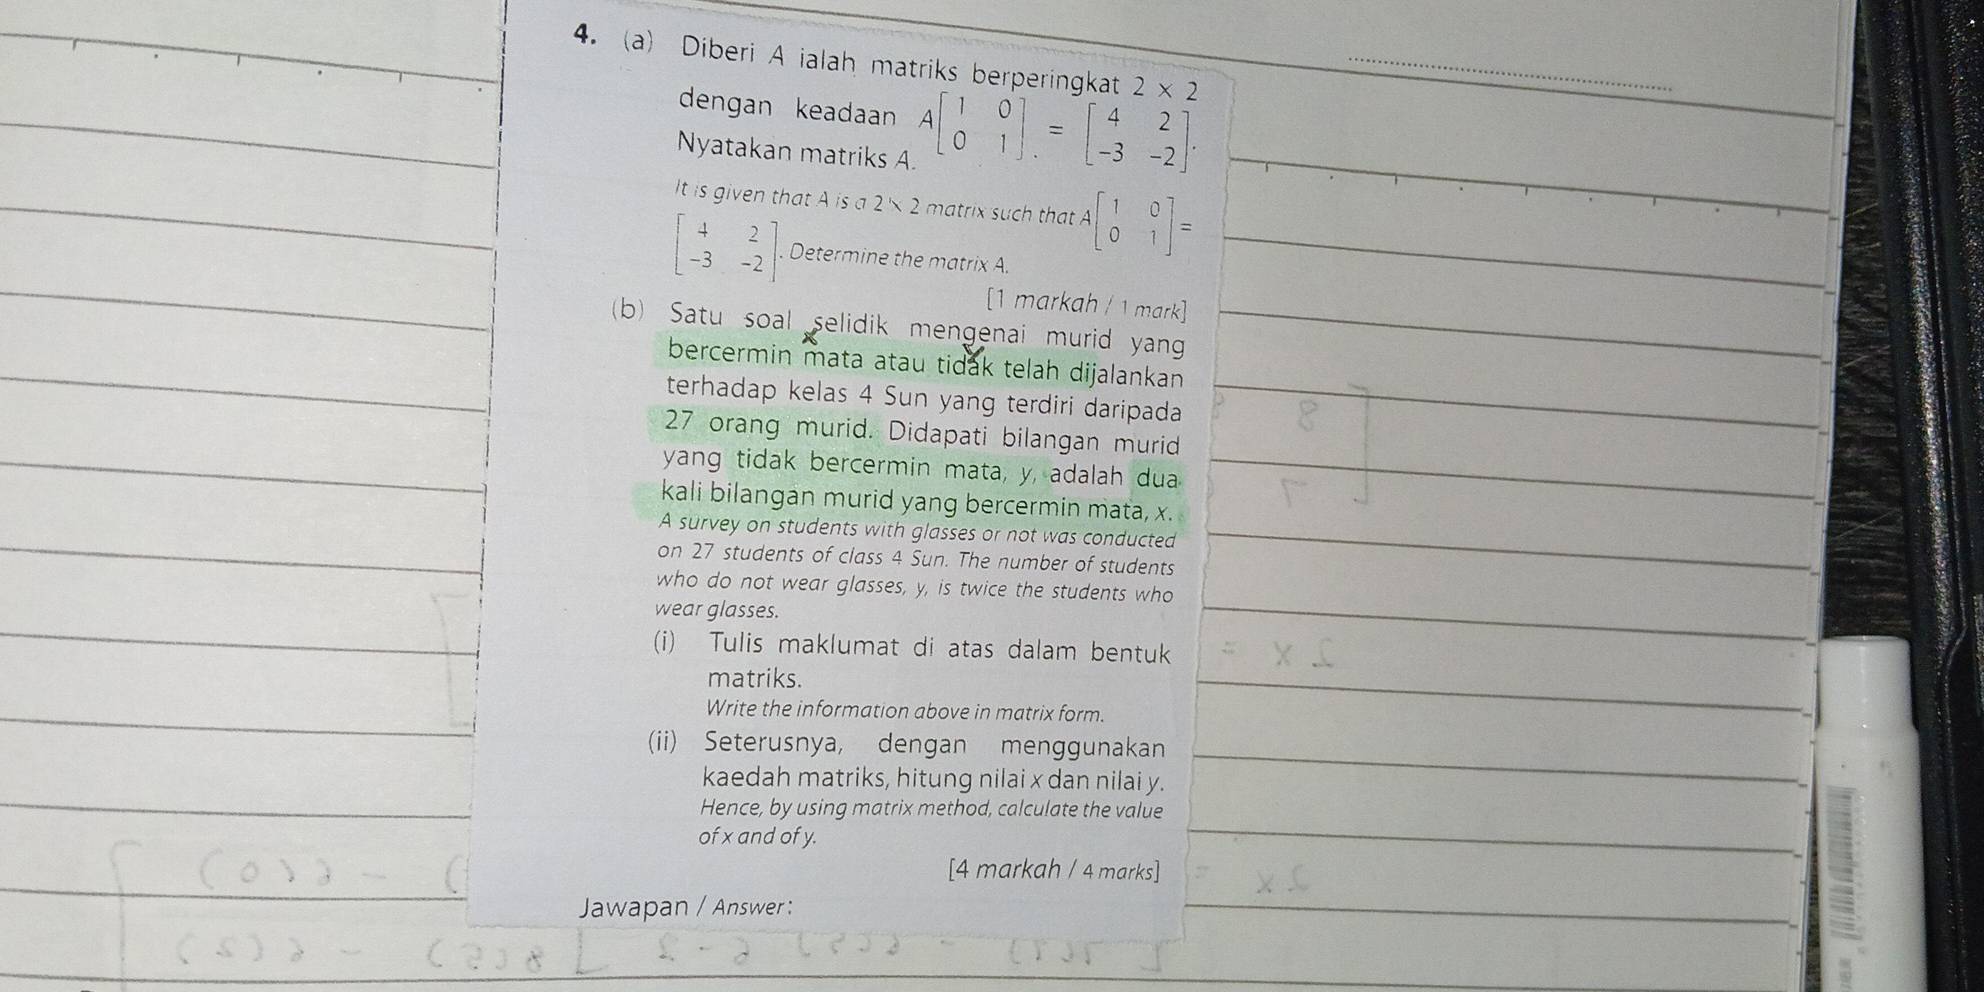 4. (a) Diberi A ialah matriks berperingkat 2 × 2
dengan keadaan A [1 0; 0 1] = [4 2; -3 -2].
Nyatakan matriks A.
It is given that A is a 2 × 2 matrix such that A [1 0; 0 1] =
[4 2; -3 -2]. Determine the matrix A.
[1 markah / 1 mark]
(b) Satu soal selidik mengenai murid yang
bercermin mata atau tidak telah dijalankan
terhadap kelas 4 Sun yang terdiri daripada
27 orang murid. Didapati bilangan murid
yang tidak bercermin mata, y, adalah dua
kali bilangan murid yang bercermin mata, x.
A survey on students with glasses or not was conducted
on 27 students of class 4 Sun. The number of students
who do not wear glasses, y, is twice the students who
wear glasses.
(i) Tulis maklumat di atas dalam bentuk
matriks.
Write the information above in matrix form.
(ii) Seterusnya, dengan menggunakan
kaedah matriks, hitung nilai x dan nilai y.
Hence, by using matrix method, calculate the value
of x and of y.
[4 markah / 4 marks]
Jawapan / Answer: